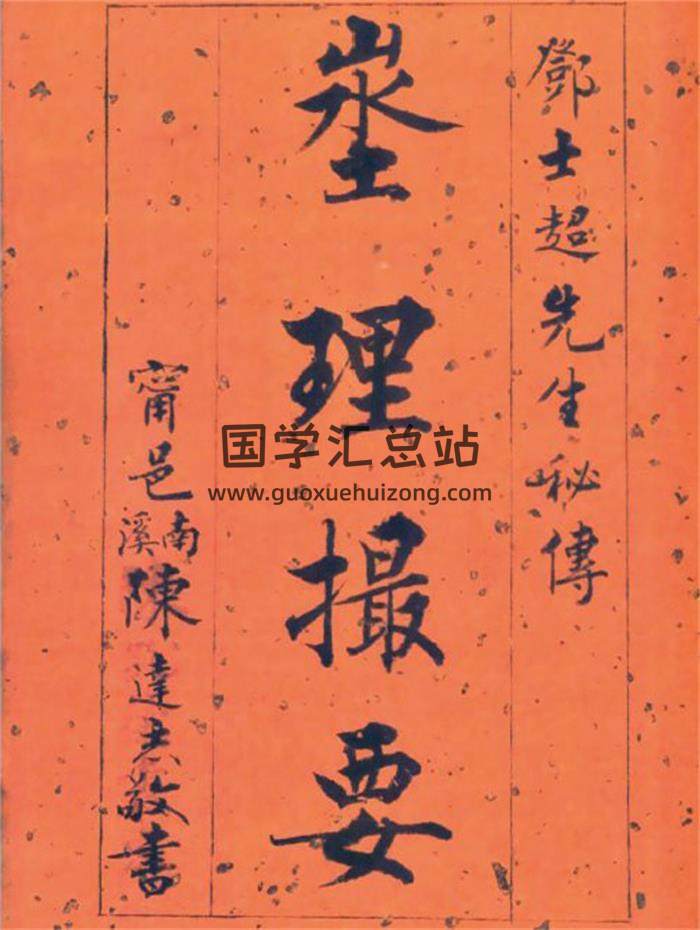 鄧士超先生秘傳
埊理撮要
甯邑南溪陳達志敬書
国学汇总站
www.guoxuehuizong.com